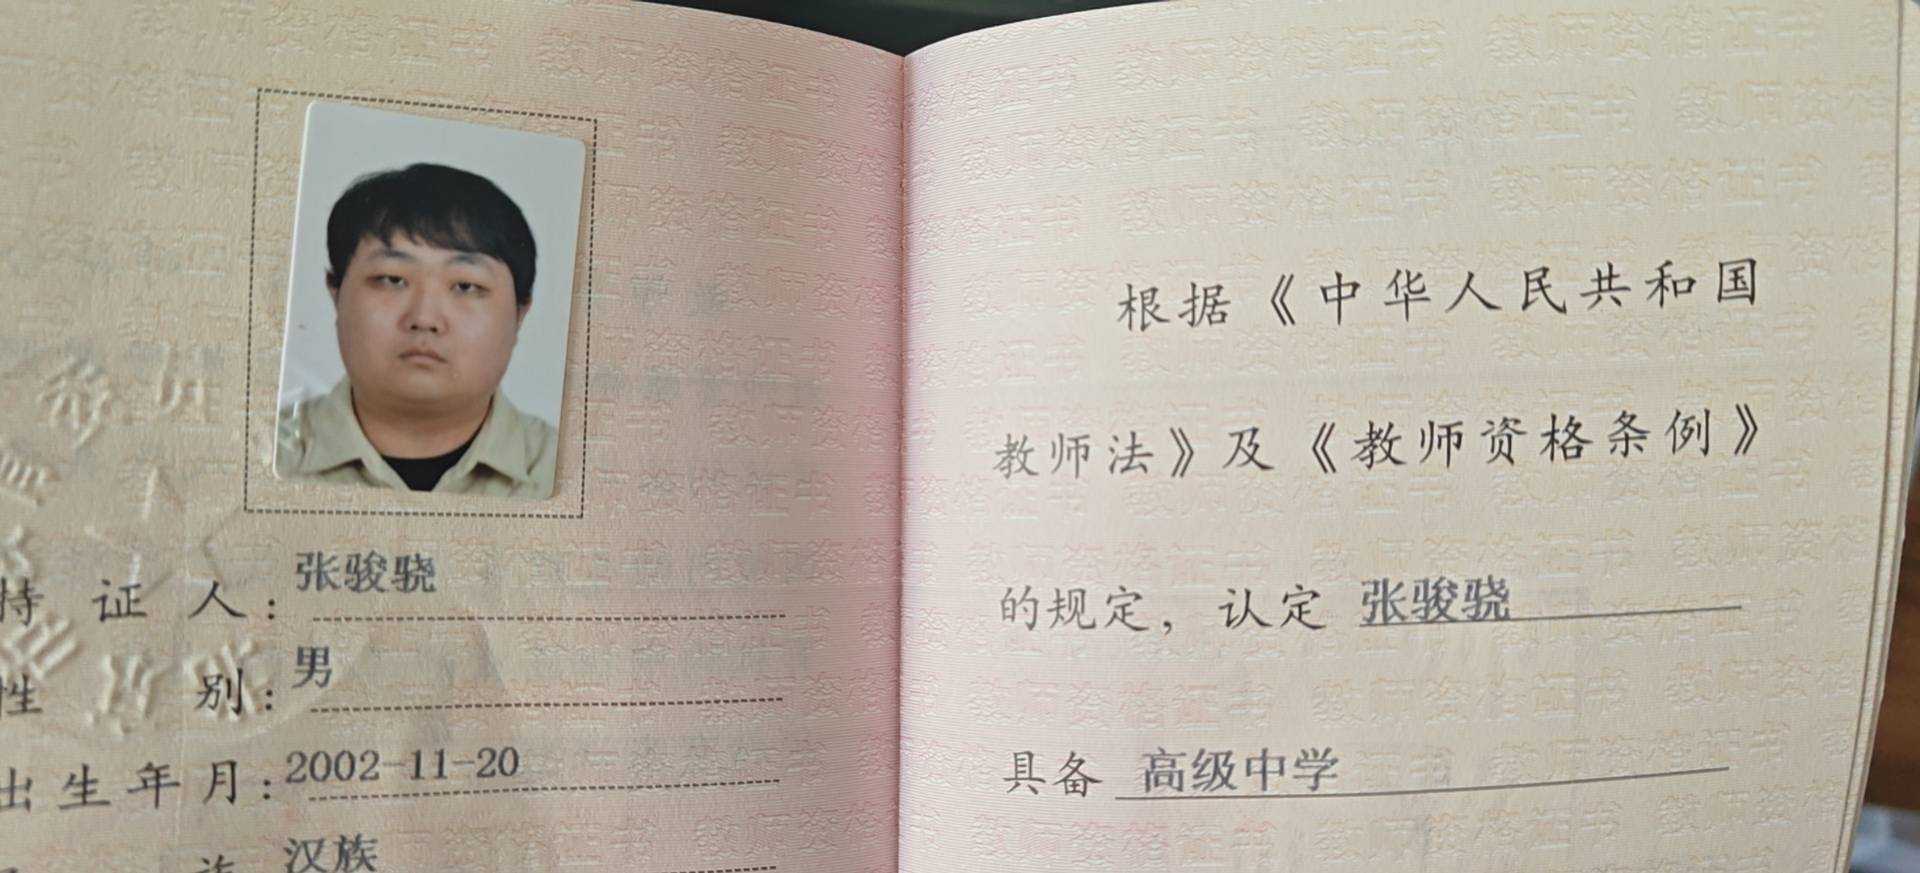 持证人：张骏骁
性别：男
出生年月：2002-11-20
汉族
根据《中华人民共和国
教师法》及《教师资格条例》
的规定，认定 张骏骁
具备 高级中学